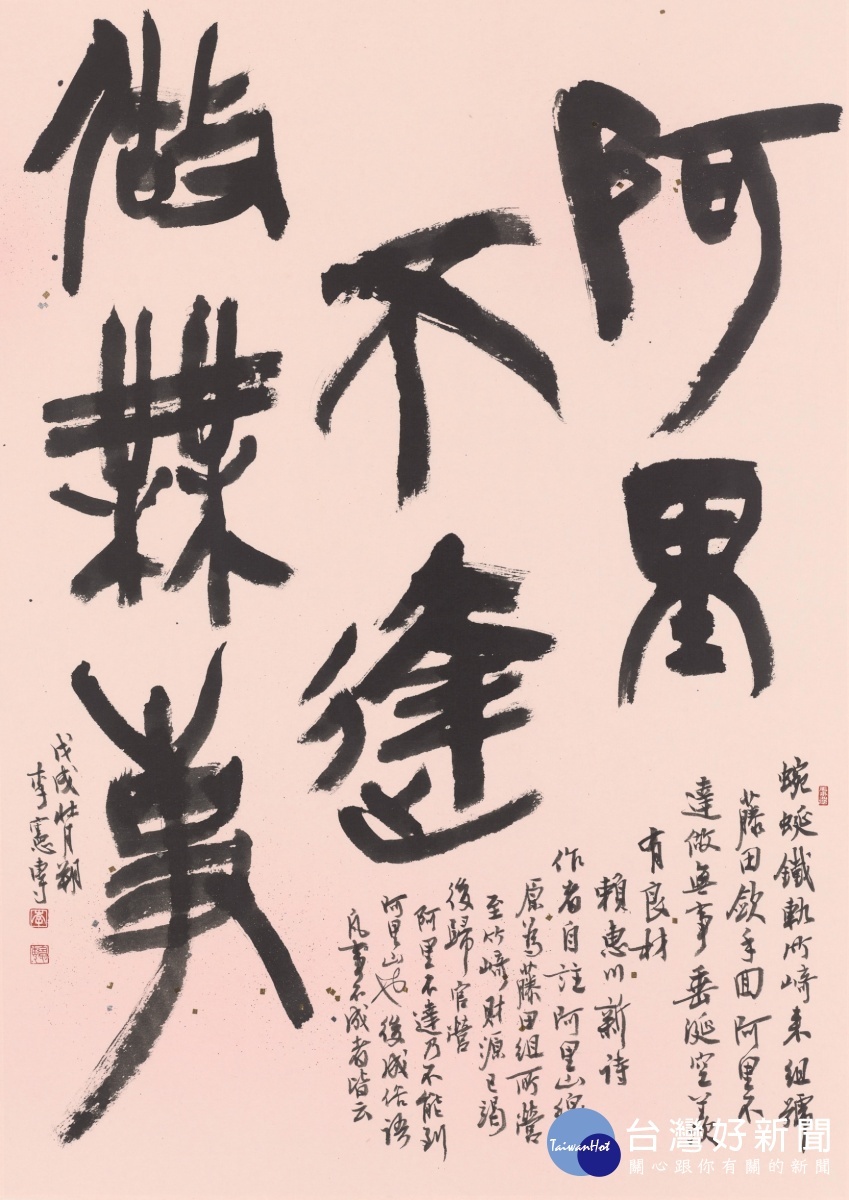 阿里
不達
做無事
蜿蜒鐵軌竹崎来組號
藤田斂手囬阿里不
達做無事垂涎空羨
有良材
賴惠川新詩
作者自註阿里山線
原為藤田組所營
至竹崎財源已竭
後歸官營
阿里不達乃不能到
阿里山也後成俗語
凡事不成者皆云
戊戌壯月朔
李憲專
TaiwanHot
台灣好新聞
關心跟你有關的新聞